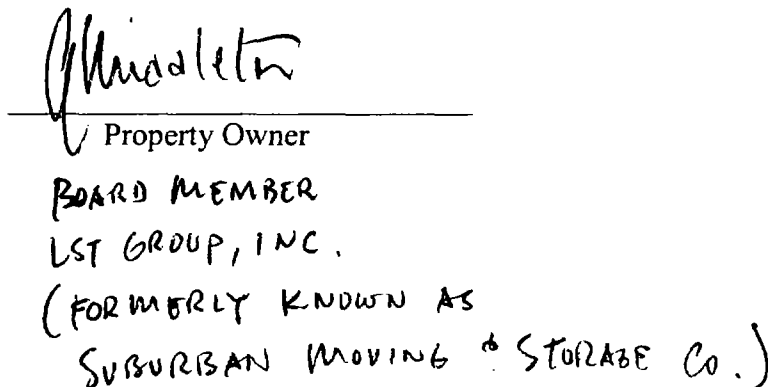 JMiddleton
Property Owner
BOARD MEMBER
LST GROUP, INC.
(FORMERLY KNOWN AS
SUBURBAN MOVING & STORAGE CO.)